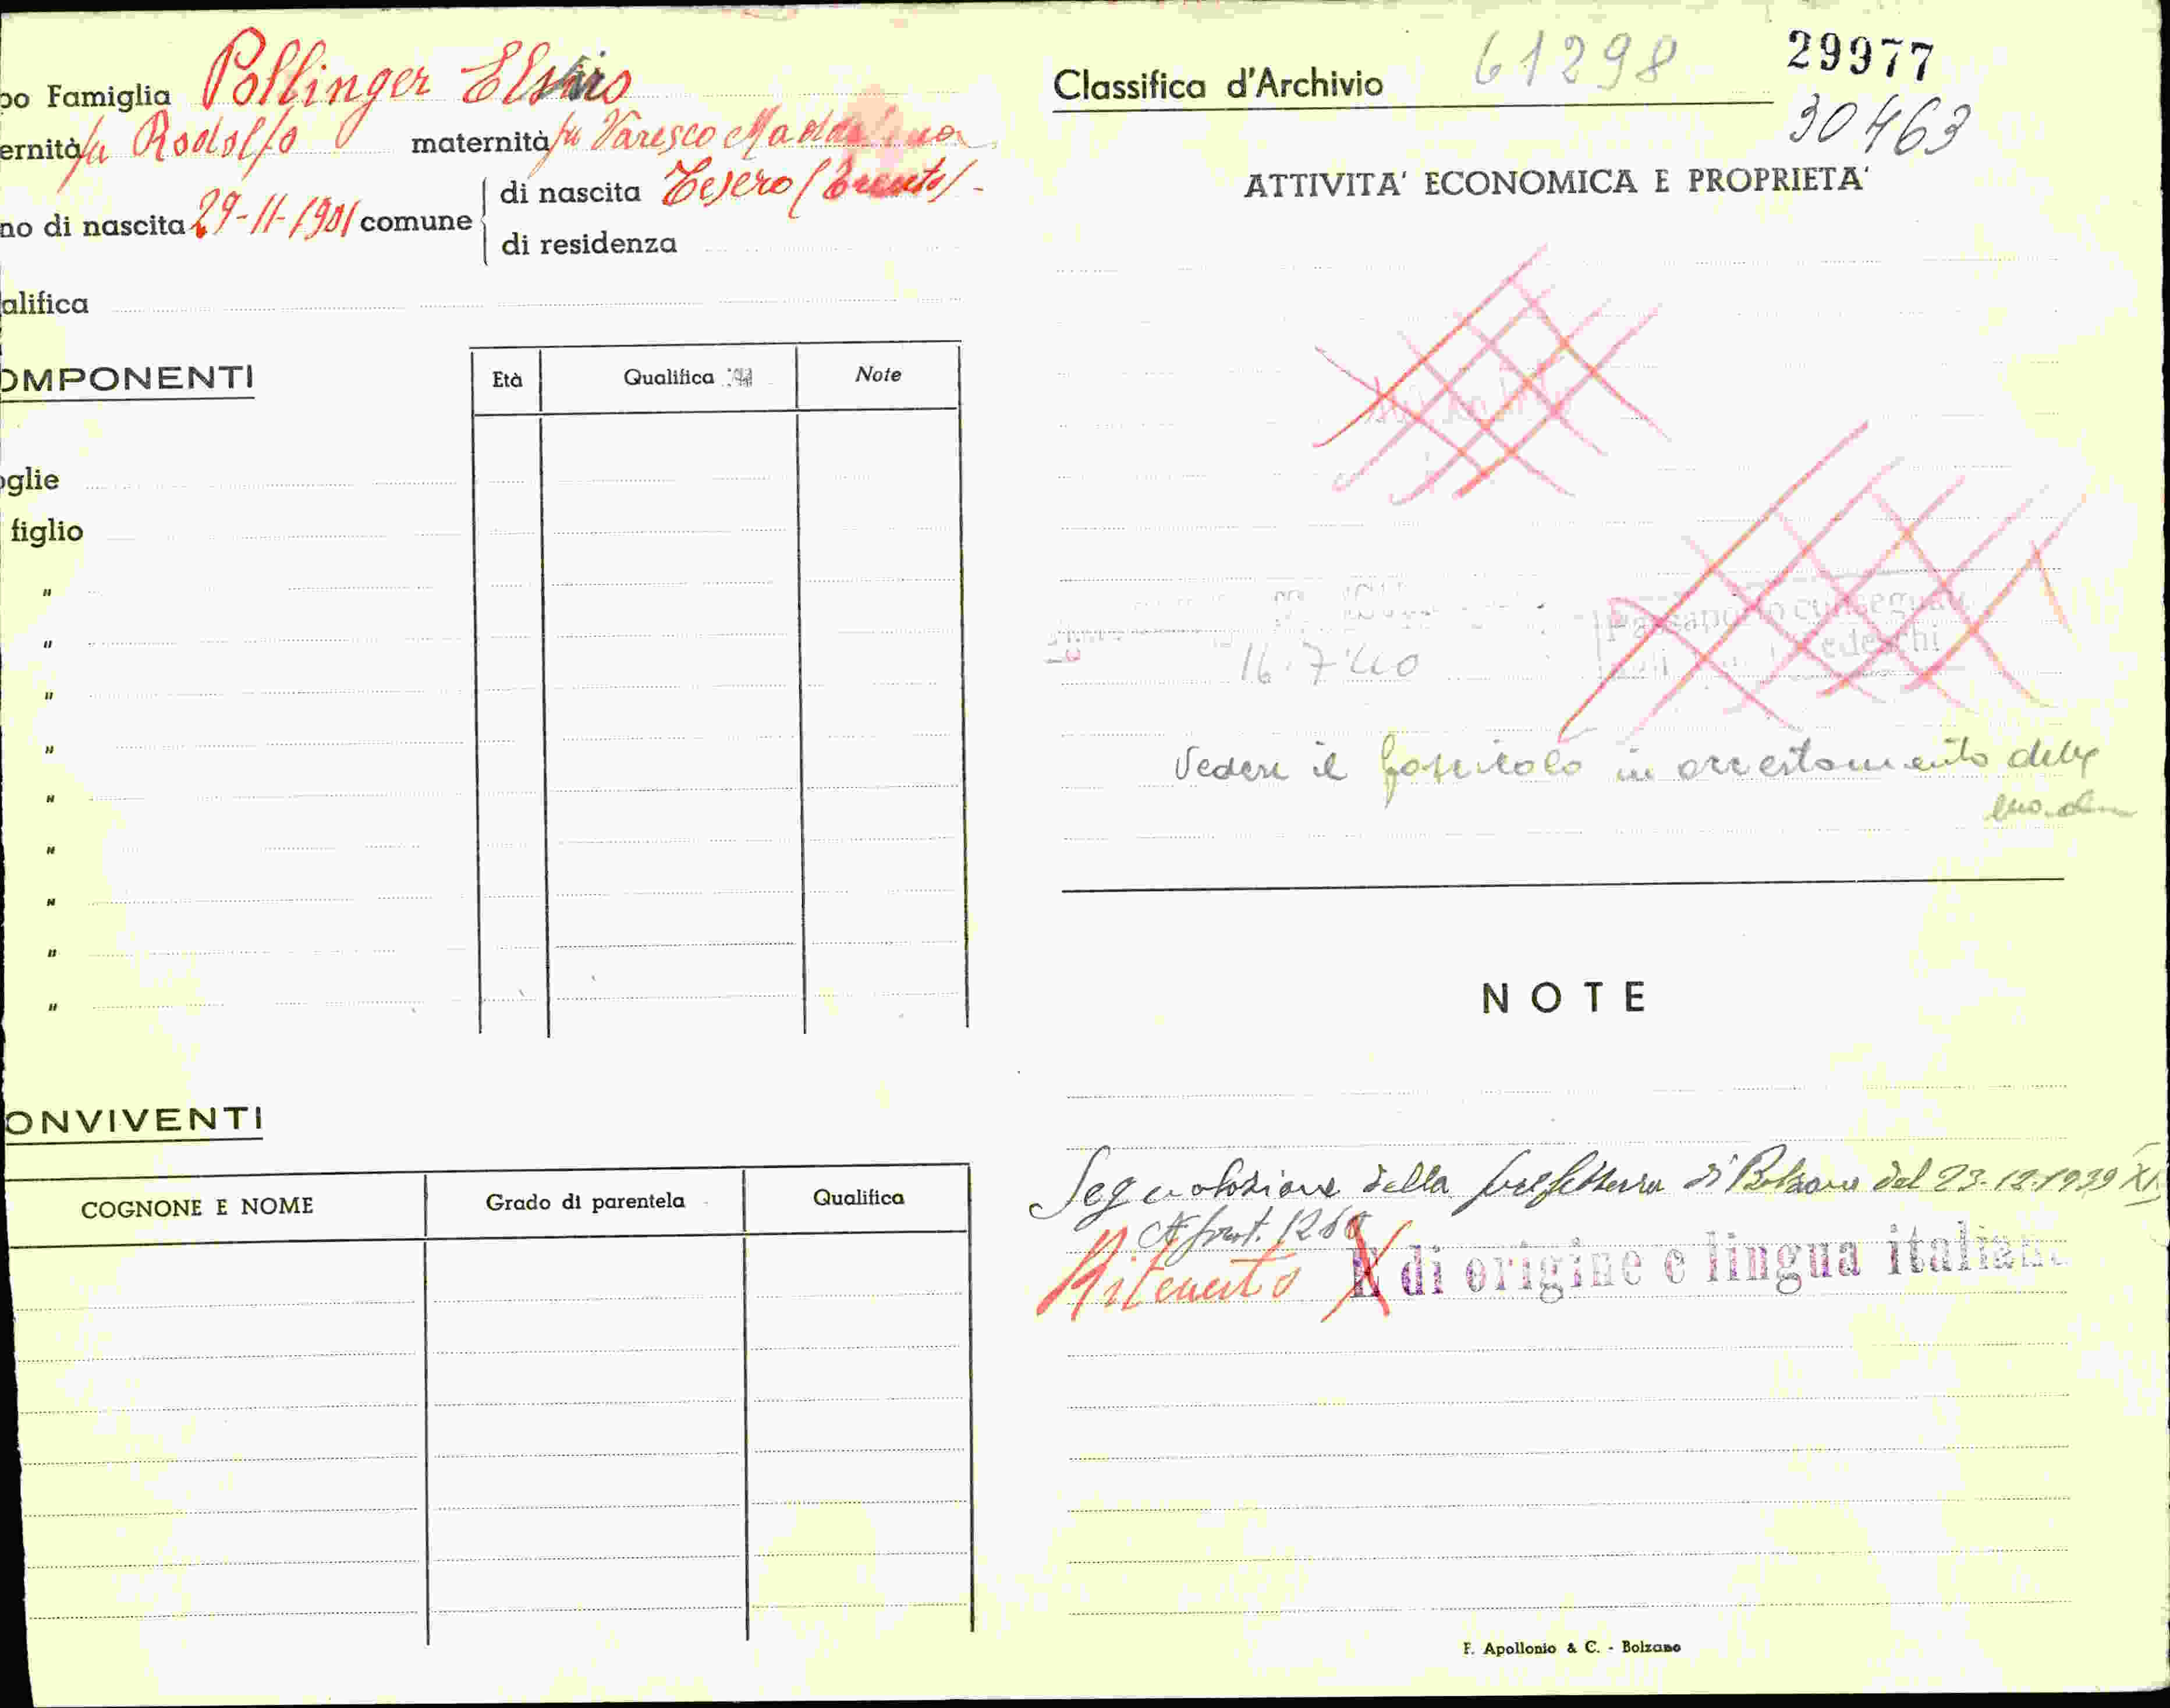 po Famiglia Pollinger
ernità fu Rodolfo maternità fu Varesco Maddalena
no di nascita 29-11-1901 comune di nascita Tesero (Trento) -
di residenza
alifica
OMPONENTI
Età Qualifica Note
oglie
figlio
"
"
"
"
"
"
"
"
"
ONVIVENTI
COGNONE E NOME Grado di parentela Qualifica
Classifica d'Archivio 61298 29977
30463
ATTIVITA' ECONOMICA E PROPRIETA'
16.7 40
Vedere il fascicolo in accertamento della
NOTE
Segnalazione della prefettura di Bolzano del 23.12.1939
N prot.
Ritenuto di origine e lingua italiana
F. Apollonio & C. - Bolzano